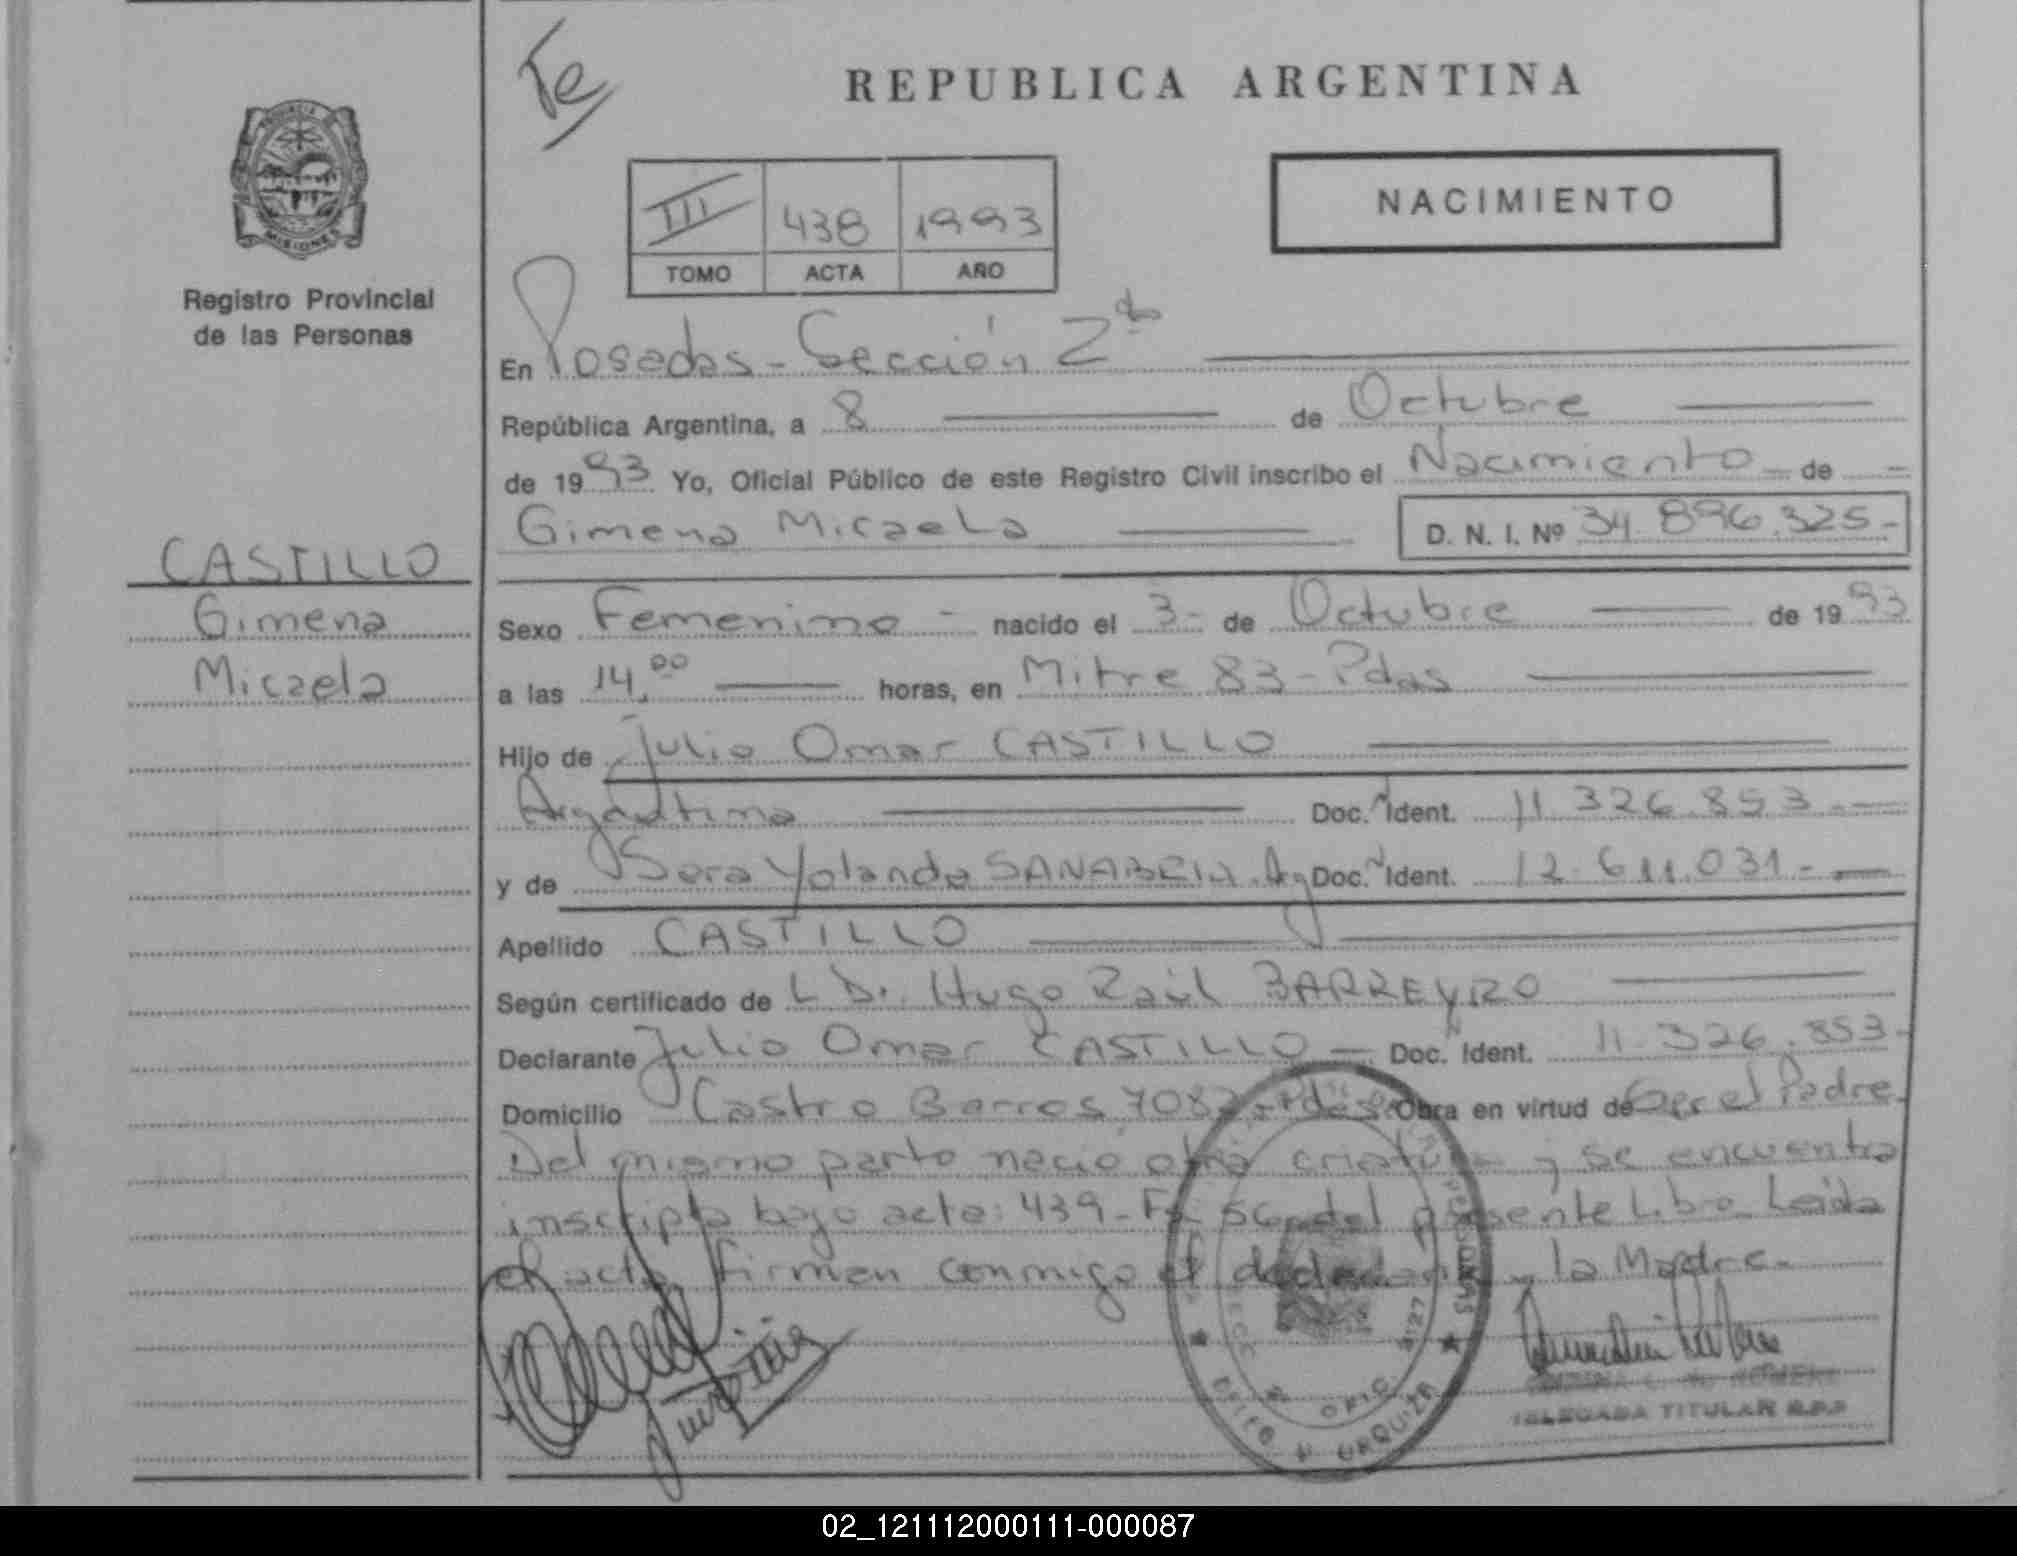 Te
REPUBLICA ARGENTINA
NACIMIENTO
III 438 1993
TOMO ACTA AÑO
PROVINCIA DE
MISIONES
Registro Provincial
de las Personas
CASTILLO
Gimena
Micaela
En Posadas - Sección 2da
República Argentina, a 8 de Octubre
de 1993 Yo, Oficial Público de este Registro Civil inscribo el Nacimiento de
Gimena Micaela D. N. I. Nº 34.896.325-
Sexo Femenino - nacido el 3- de Octubre de 1993
a las 14,00 horas, en Mitre 83 - Pdas
Hijo de Julio Omar CASTILLO
Argentino Doc. Ident. 11.326.853.-
y de Sara Yolanda SANABRIA. Arg Doc. Ident. 12.611.031.-
Apellido CASTILLO
Según certificado de L Dr. Hugo Raúl BARREYRO
Declarante Julio Omar CASTILLO - Doc. Ident. 11.326.853-
Domicilio Castro Barros 7082 - Pdas Obra en virtud de Ser el Padre.
Del mismo parto nació otra criatura y se encuentra
inscripta bajo acta: 439 - Fº del presente Libro Leída
el acta firman conmigo el declarante y la Madre.-
PERSONAS
SECC
OFIC
DELEGADA TITULAR R.P.P
02_121112000111-000087